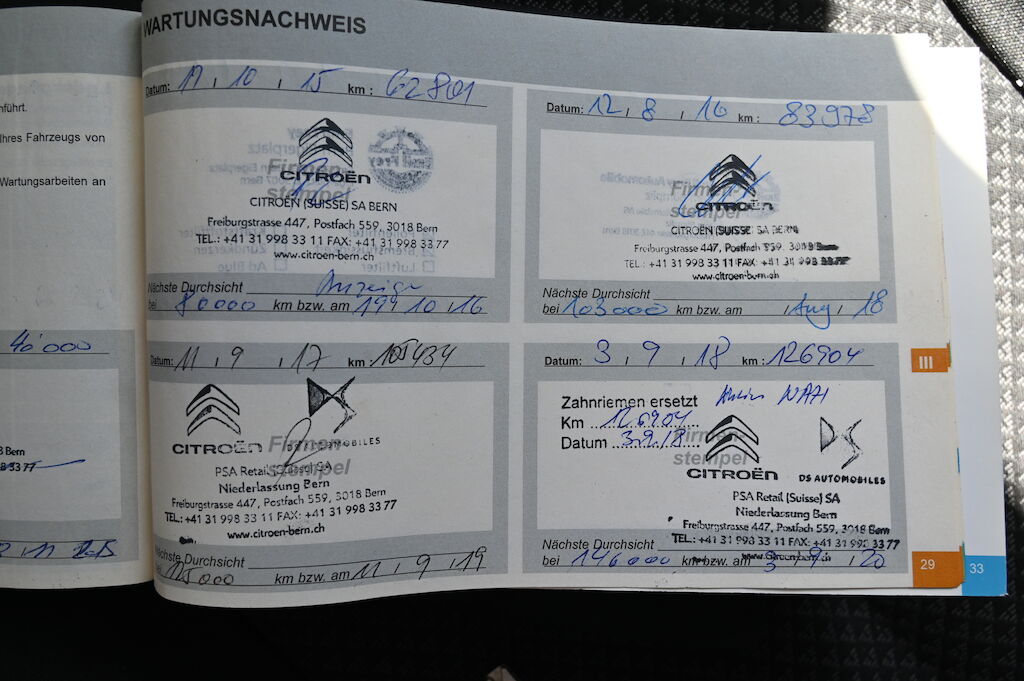 führt.
Ihres Fahrzeugs von
Wartungsarbeiten an
40'000
Bern
33 77
WARTUNGSNACHWEIS
Datum: 17 , 10 , 15 km : 62801
Firmen-
stempel
CITROËN
CITROËN (SUISSE) SA BERN
Freiburgstrasse 447, Postfach 559, 3018 Bern
TEL.: +41 31 998 33 11 FAX: +41 31 998 33 77
www.citroen-bern.ch
Nächste Durchsicht Anzeige
bei 80000 km bzw. am 10 , 16
Datum: 12 , 8 , 16 km : 83978
Firmen-
stempel
CITROËN
CITROËN (SUISSE) SA BERN
Freiburgstrasse 447, Postfach 559, 3018 Bern
TEL.: +41 31 998 33 11 FAX: +41 31 998 33 77
www.citroen-bern.ch
Nächste Durchsicht
bei 103000 km bzw. am , Aug , 18
Datum: 11 , 9 , 17 km : 105434
Firmen-
stempel
CITROËN DS AUTOMOBILES
PSA Retail (Suisse) SA
Niederlassung Bern
Freiburgstrasse 447, Postfach 559, 3018 Bern
TEL.: +41 31 998 33 11 FAX: +41 31 998 33 77
www.citroen-bern.ch
Nächste Durchsicht
bei 125000 km bzw. am 11 , 9 , 19
Datum: 3 , 9 , 18 km : 126904
Zahnriemen ersetzt
Km 126904
Datum 3.9.18
Firmen-
stempel
CITROËN DS AUTOMOBILES
PSA Retail (Suisse) SA
Niederlassung Bern
Freiburgstrasse 447, Postfach 559, 3018 Bern
TEL.: +41 31 998 33 11 FAX: +41 31 998 33 77
www.citroen-bern.ch
Nächste Durchsicht
bei 146000 km bzw. am 3 , 9 , 20
III
29
33